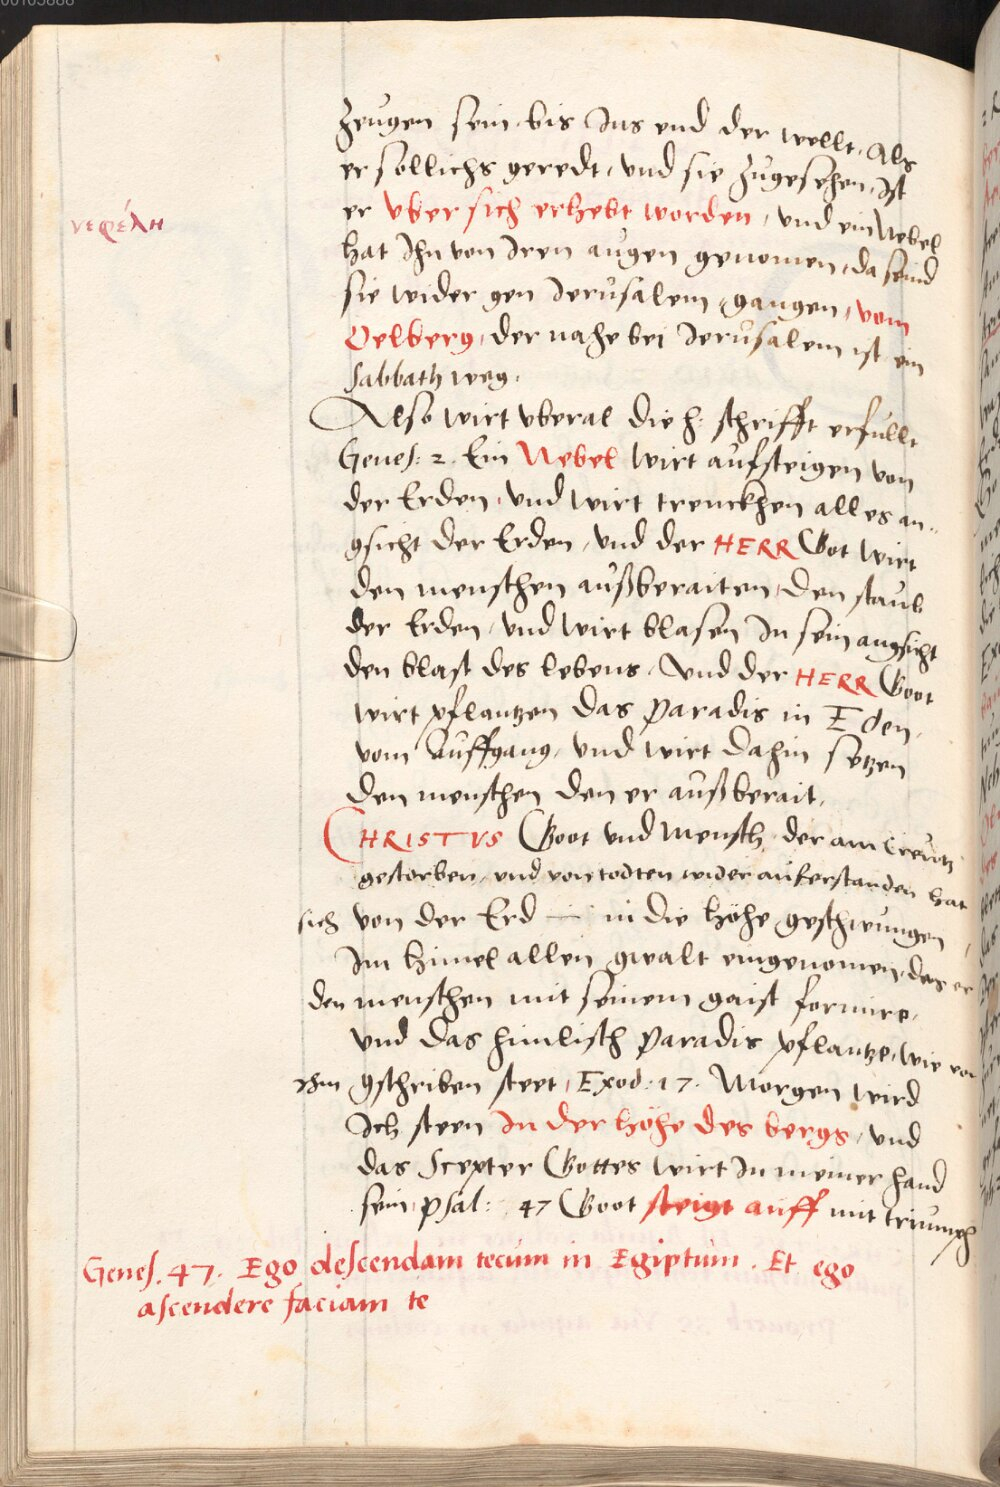 Zeugen sein, bis Ins end der wellt. Als
er sollichs geredt, und sie Zugesehen, Ist
er vber sich erhebt worden, und ein Nebel
νεφέλη
hat Ihn von Iren augen genomen, da seind
sie wider gen Jerusalem gangen, vom
Oelberg, der nahe bei Jerusalem ist ein
sabbath weg.
Also wirt vberal die h. schrifft erfullt
Genes: 2. Ein Nebel wirt aufsteigen von
der Erden, und wirt trenckhen alles an-
gsicht der Erden, und der HERR Got wirt
den menschen außberaiten, den staub
der Erden, und wirt blasen In sein angsicht
den blast des lebens. Und der HERR Goot
wirt pflantzen das Paradis in Eden,
vom Auffgang, und wirt dahin setzen
den menschen den er außberait.
CHRISTVS Goot und Mensch, der am Creutz
gestorben, und von todten wider auferstanden hat
sich von der Erd — in die höhe geschwungen,
Im himel allen gwalt eingenomen, das er
den menschen mit seinem gaist formire,
und das himlisch Paradis pflantze, wie von
Ihm gschriben steet, Exod: 17. Morgen wird
Ich steen In der höhe des bergs, und
das Scepter Gottes wirt In meiner hand
sein, psal: 47 Goot steigt auff mit triumph
Genes. 47. Ego descendam tecum in Egiptum. Et ego
ascendere faciam te